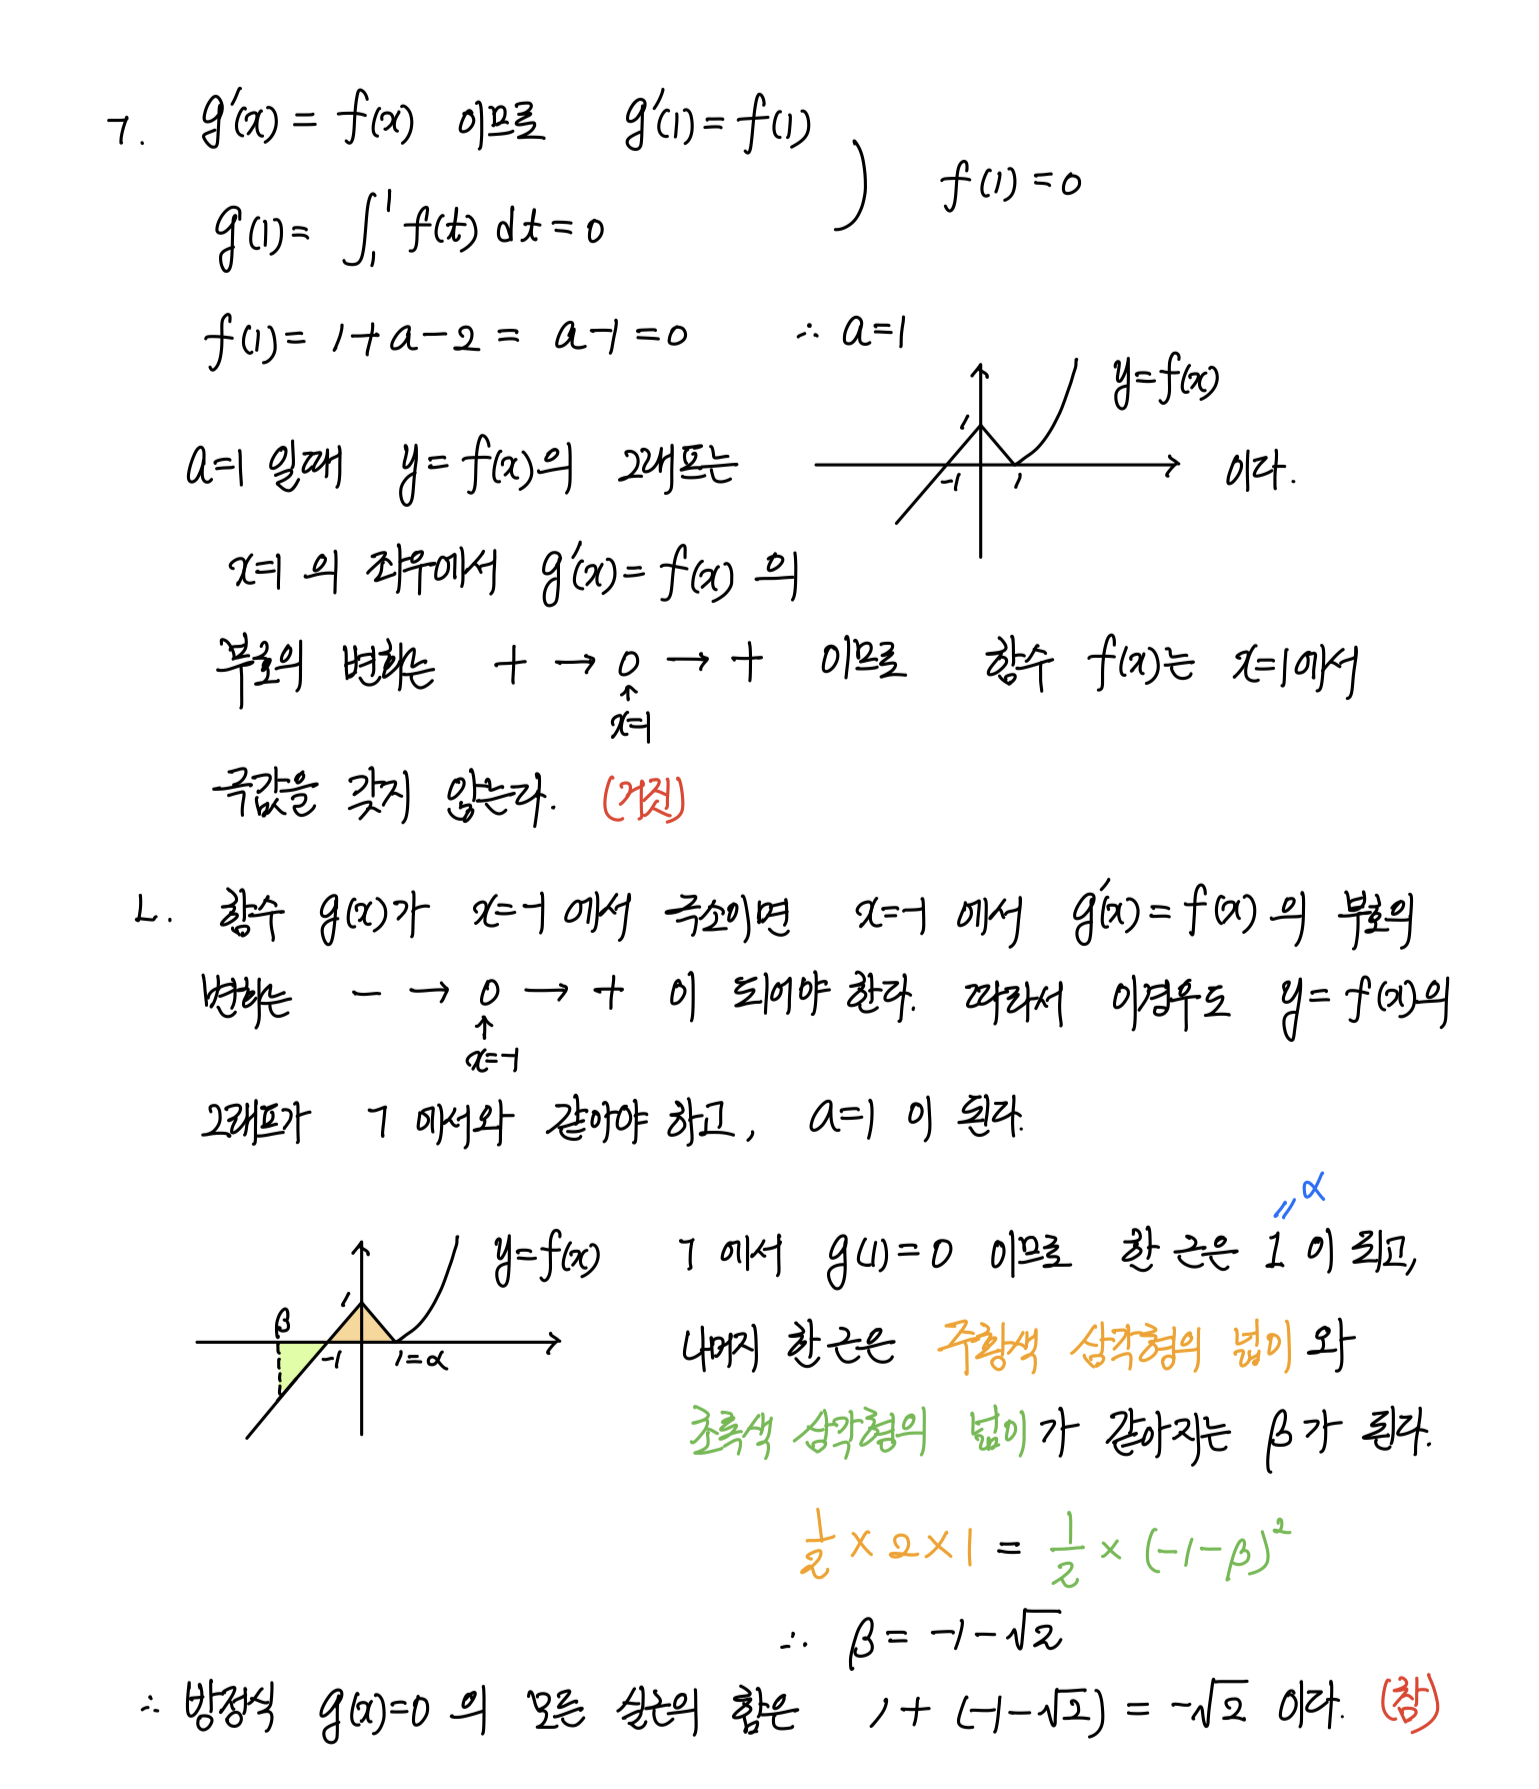 ㄱ. g'(x) = f(x) 이므로 g'(1) = f(1)
g(1) = ∫₁¹ f(t) dt = 0
f(1) = 0
f(1) = 1+a-2 = a-1 = 0 ∴ a=1
y=f(x)
1
-1 1
a=1 일때 y = f(x)의 그래프는 이다.
x=1 의 좌우에서 g'(x) = f(x) 의
부호의 변화는 + → 0 → + 이므로 함수 f(x)는 x=1에서
↑
x=1
극값을 갖지 않는다. (거짓)
ㄴ. 함수 g(x)가 x=-1 에서 극소이면 x=-1 에서 g'(x) = f(x) 의 부호의
변화는 - → 0 → + 이 되어야 한다. 따라서 이경우도 y = f(x)의
↑
x=-1
그래프가 ㄱ 에서와 같아야 하고, a=1 이 된다.
= α
ㄱ 에서 g(1) = 0 이므로 한 근은 1 이 되고,
y=f(x)
1
β
-1 1=α
나머지 한 근은 주황색 삼각형의 넓이 와
초록색 삼각형의 넓이가 같아지는 β가 된다.
1/2 × 2 × 1 = 1/2 × (-1-β)²
∴ β = -1-√2
∴ 방정식 g(x)=0 의 모든 실근의 합은 1 + (-1-√2) = -√2 이다. (참)